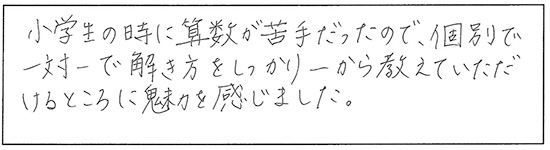 小学生の時に算数が苦手だったので、個別で
一対一で解き方をしっかり一から教えていただ
けるところに魅力を感じました。